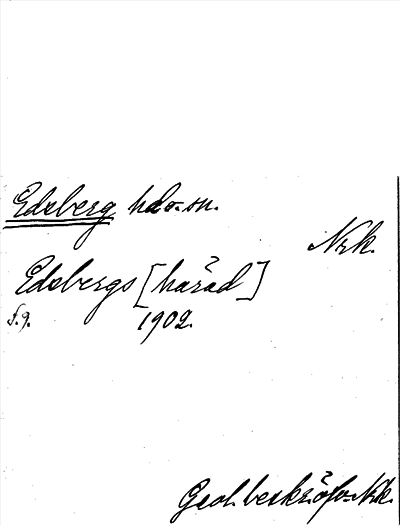 Edsberg hd o. sn.
Nrk.
Edsbergs [härad]
s. 9. 1902.
Geol. beskr. öfv. Nrk.